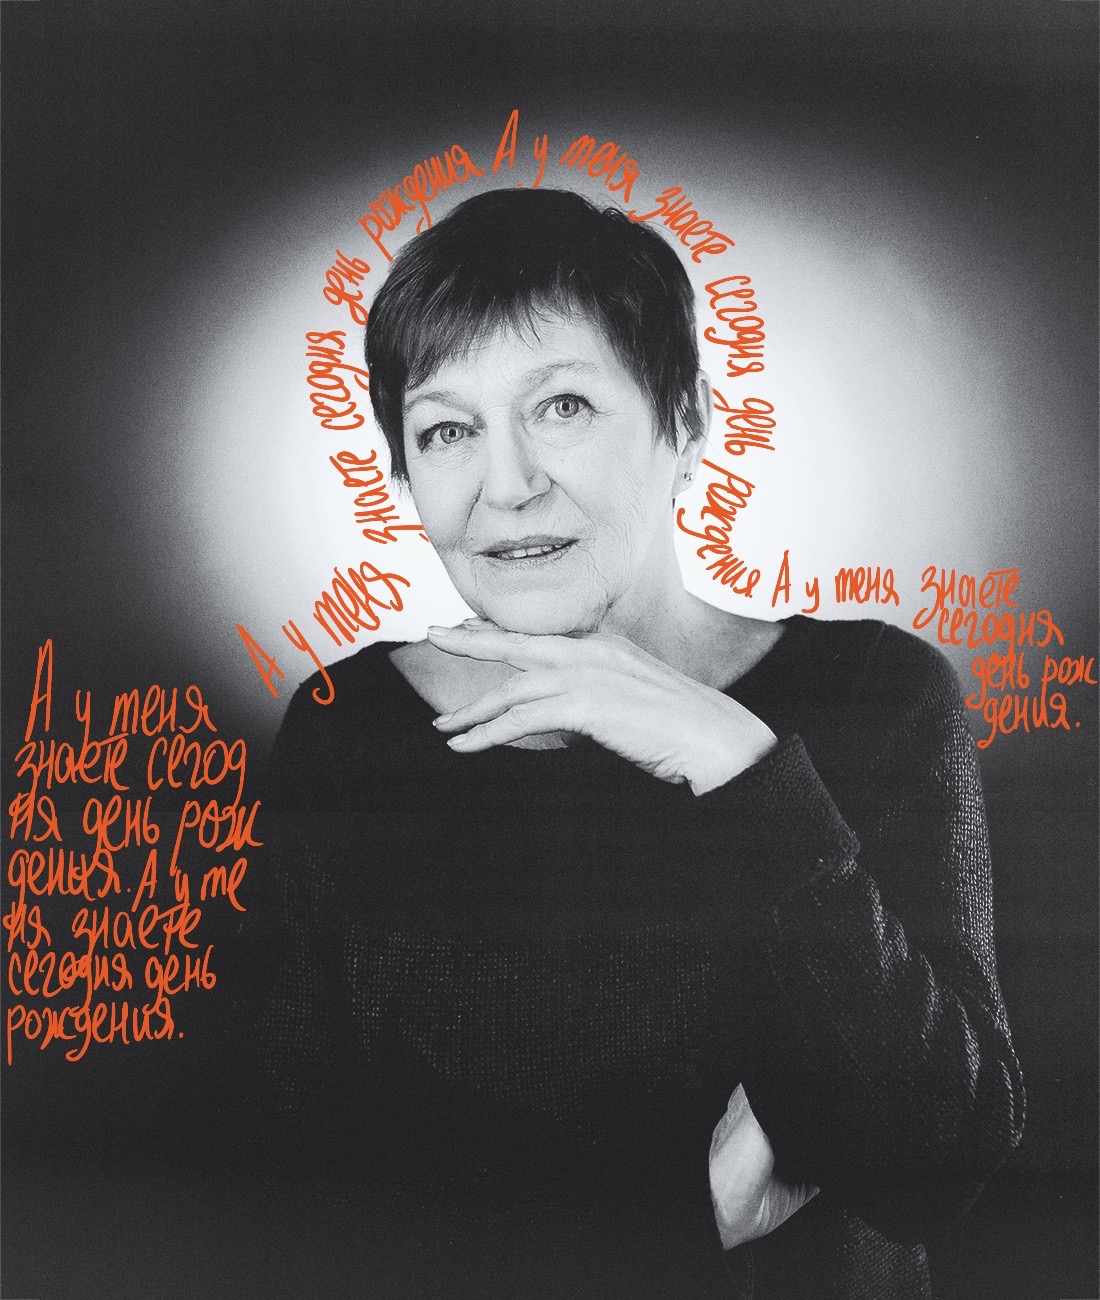 А у меня знаете сегодня день рождения А у меня знаете сегодня день рождения А у меня знаете
сегодня
день рож
дения.
А у меня
знаете сегод
ня день рож
дения. А у ме
ня знаете
сегодня день
рождения.